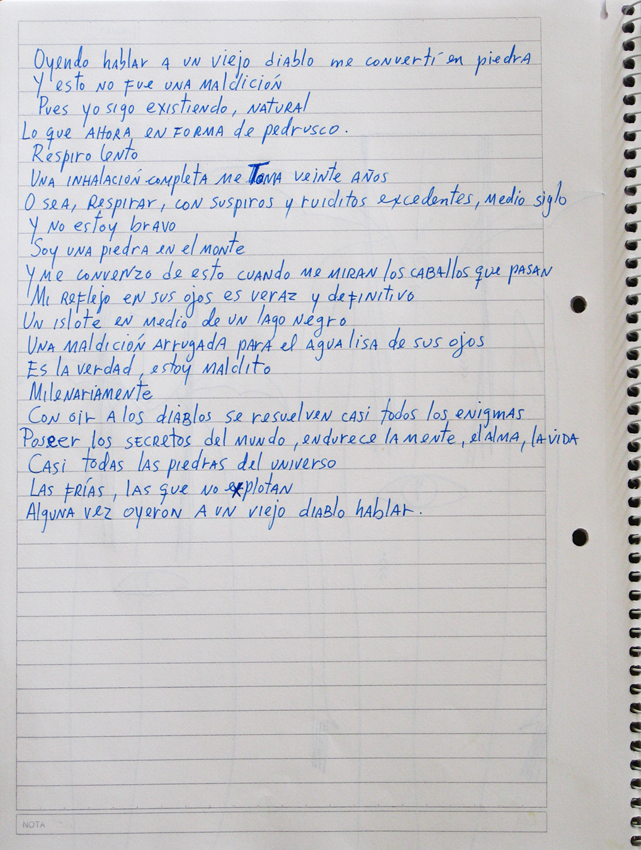 Oyendo hablar a un viejo diablo me convertí en piedra
Y esto no fue una maldición
Pues yo sigo existiendo, natural
Lo que ahora en forma de pedrusco.
Respiro lento
Una inhalación completa me toma veinte años
O sea, respirar, con suspiros y ruiditos excedentes, medio siglo
Y no estoy bravo
Soy una piedra en el monte
Y me convenzo de esto cuando me miran los caballos que pasan
Mi reflejo en sus ojos es veraz y definitivo
Un islote en medio de un lago negro
Una maldición arrugada para el agua lisa de sus ojos
Es la verdad, estoy maldito
Milenariamente
Con oir a los diablos se resuelven casi todos los enigmas
Poseer los secretos del mundo, endurece la mente, el alma, la vida
Casi todas las piedras del universo
Las frías, las que no explotan
Alguna vez oyeron a un viejo diablo hablar.
NOTA